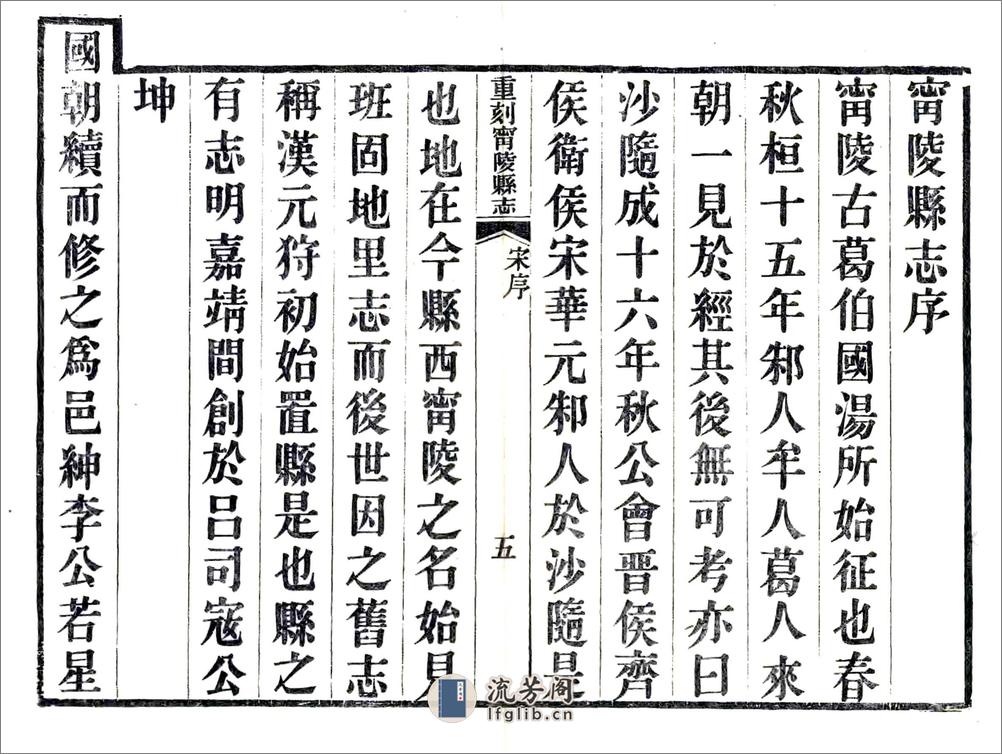 甯陵縣志序
甯陵古葛伯國湯所始征也春
秋桓十五年邾人牟人葛人來
朝一見於經其後無可考亦曰
沙隨成十六年秋公會晋侯齊
侯衛侯宋華元邾人於沙隨是
重刻甯陵縣志
宋序
五
也地在今縣西甯陵之名始見
班固地里志而後世因之舊志
稱漢元狩初始置縣是也縣之
有志明嘉靖間創於吕司寇公
坤
國朝續而修之爲邑紳李公若星
流芳阁
lfglib.cn